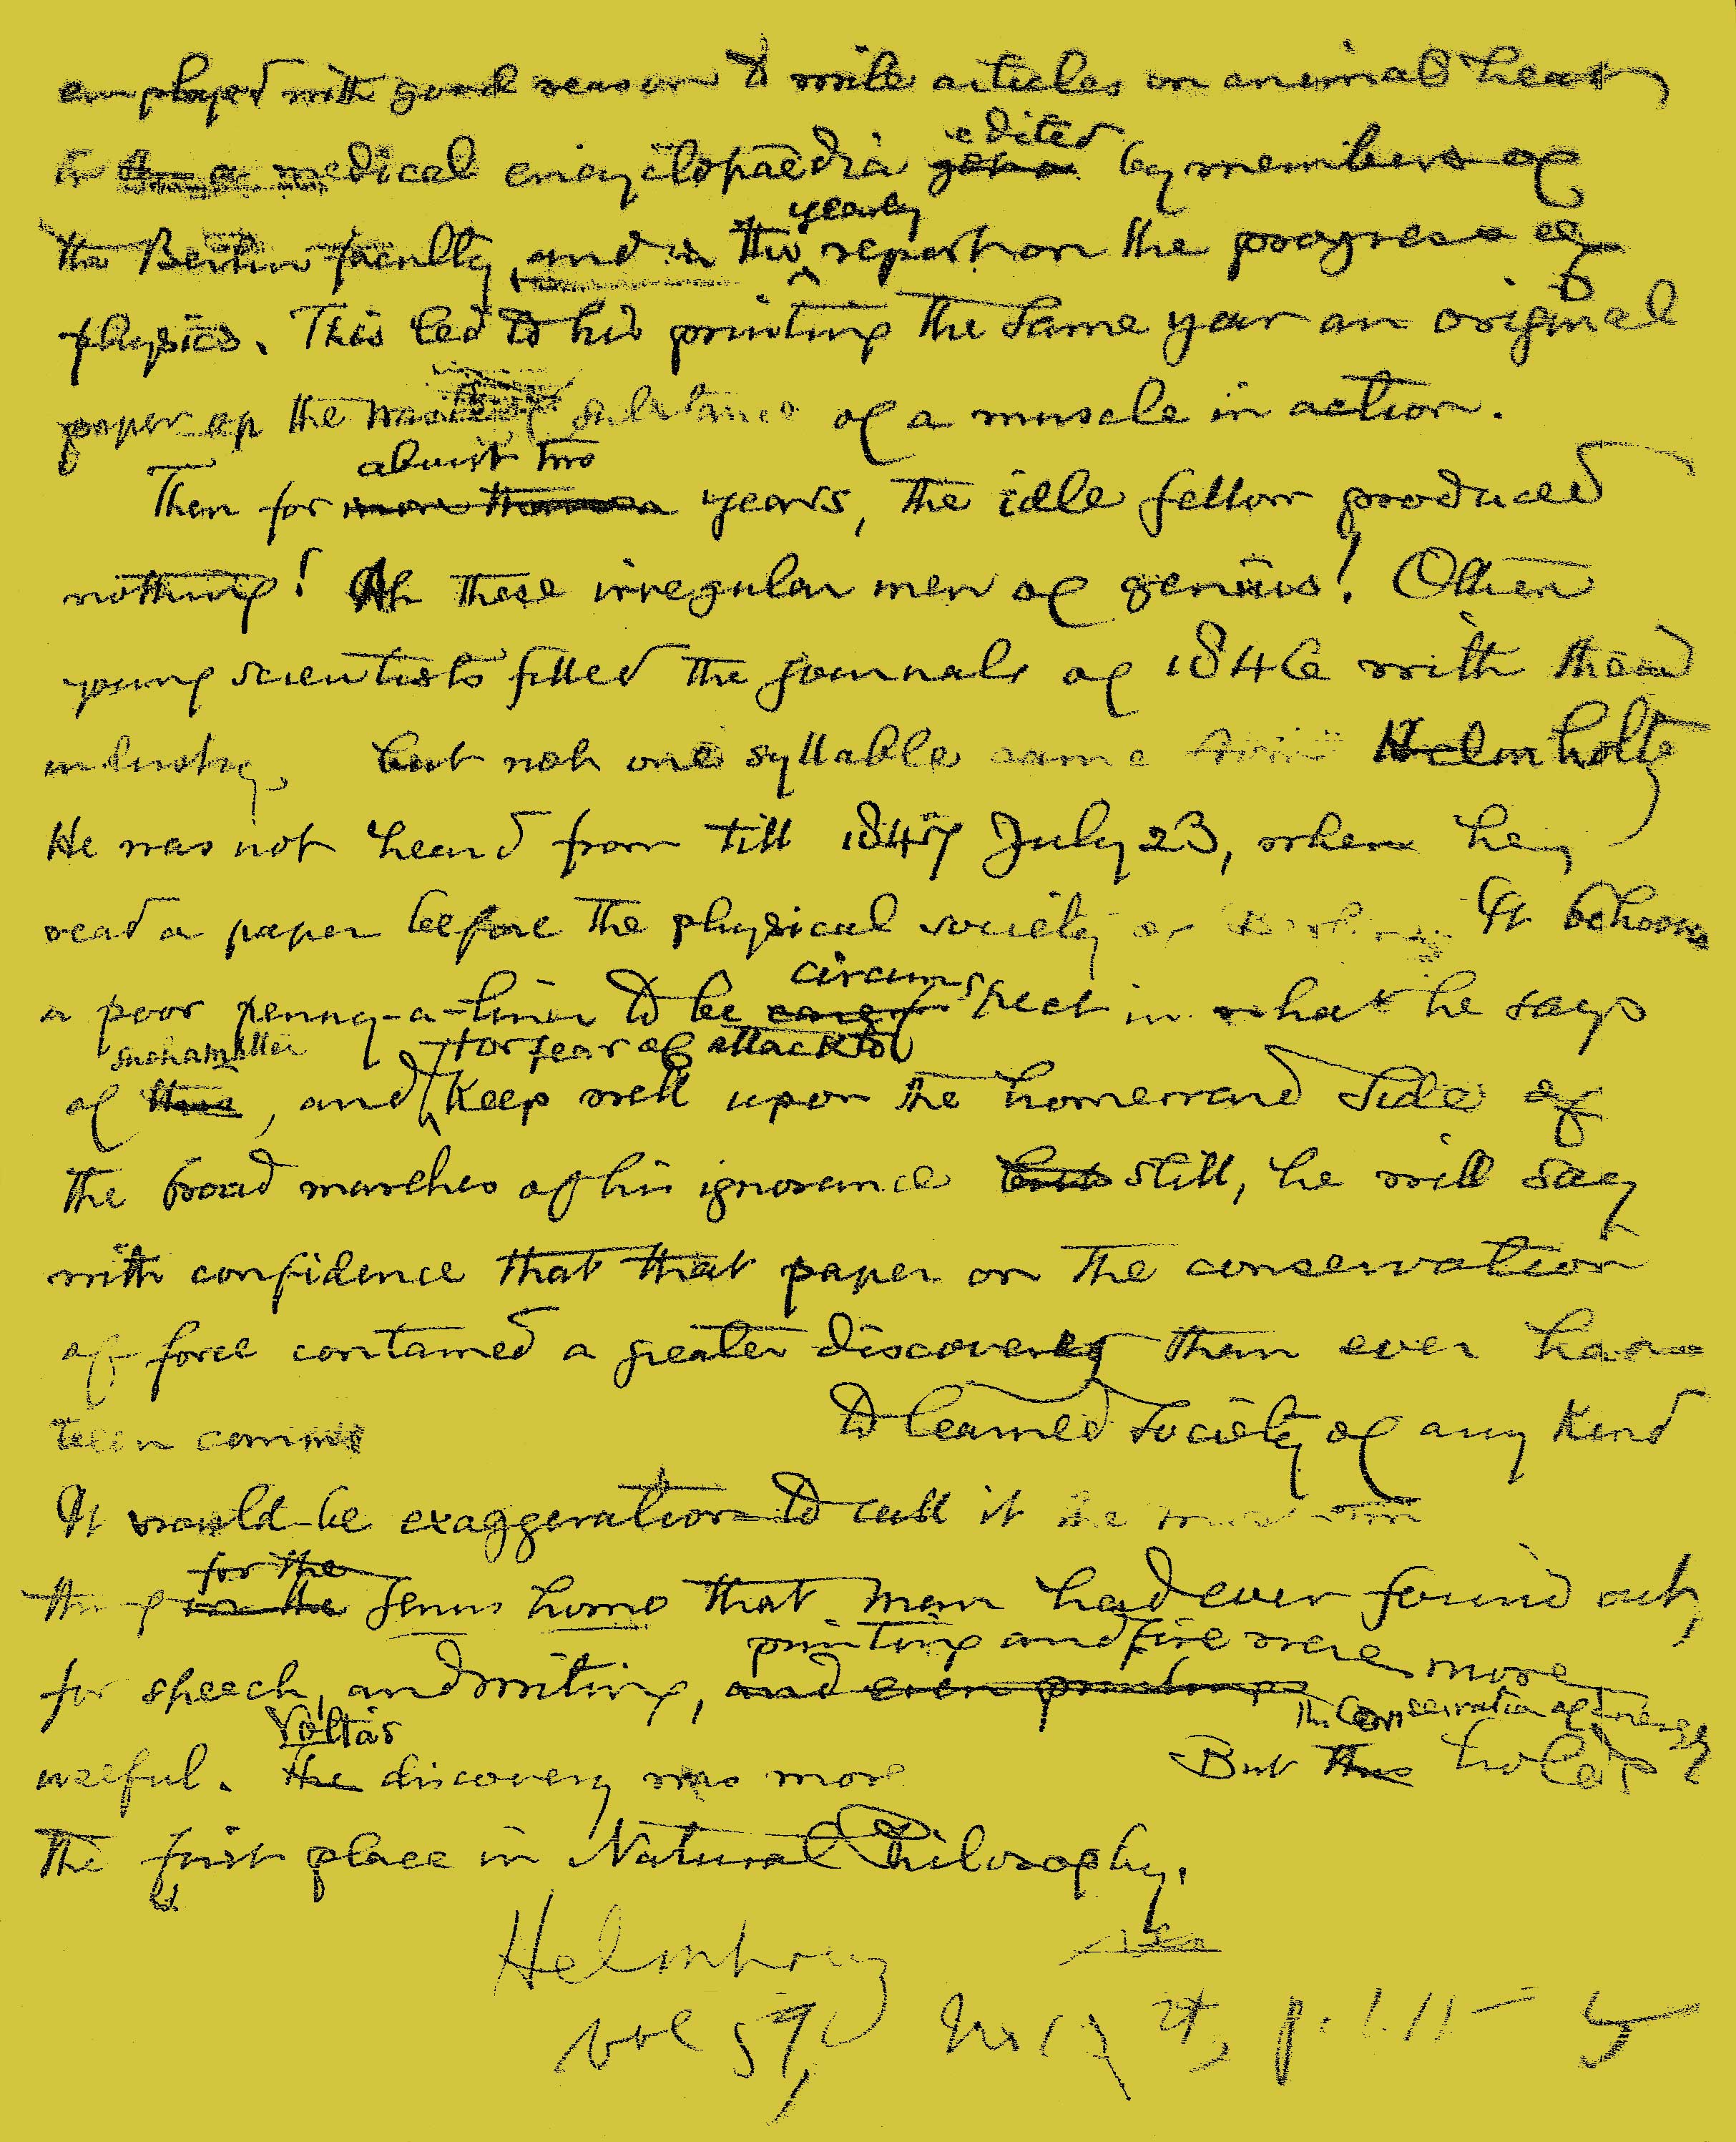 employed with good reason to write articles on animal heat
in a medical encyclopaedia edited by members of
the Berlin faculty, and in the yearly report on the progress of
physics. This led to his printing the same year an original
paper on the substance of a muscle in action.
Then for about two years, the idle fellow produced
nothing! Ah these irregular men of genius! Other
young scientists filled the journals of 1846 with their
industry, but not one syllable came from Helmholtz
He was not heard from till 1847 July 23, when he
read a paper before the physical society of Berlin. It behooves
a poor penny-a-liner to be circumspect in what he says
of such a matter, and for fear of attack to keep well upon the homeward side of
the broad marches of his ignorance still, he will say
with confidence that that paper on the conservation
of force contained a greater discovery than ever have
been to learned society of any kind
It would be exaggeration to call it the
thing for the genus homo that man had ever found out,
for speech, and writing, printing and fire were more
useful. Volta's discovery was more But the Conservation of Energy holds
the first place in Natural Philosophy.
vol 59